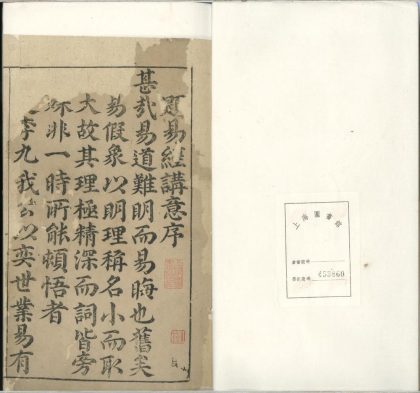 易經講意序
甚哉易道難明而易晦也舊矣
易假象以明理稱名小而取
大故其理極精深而詞皆旁
非一時所能頓悟者
李九我公以奕世業易有
上海圖書館
453860